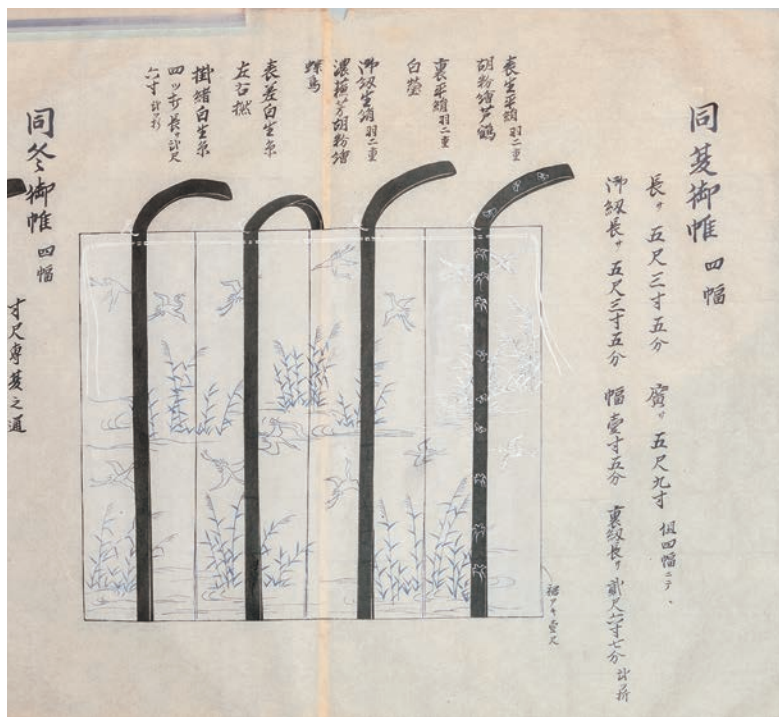 同夏御帷 四幅
長サ 五尺三寸五分 廣サ 五尺九寸 但四幅ニテ
御紐長サ 五尺三寸五分 幅壹寸五分 裏紐長サ 貳尺六寸七分
表生平絹 羽二重
胡粉繪芦鶴
裏平絹 羽二重
白瑩
御紐生絹 羽二重
濃蘇芳胡粉繪
蝶鳥
表差白生糸
左右撚
掛緒白生糸
四ツ打 長サ 貳尺
六寸
裾アキ 壹尺
同冬御帷 四幅
寸尺専夏之通